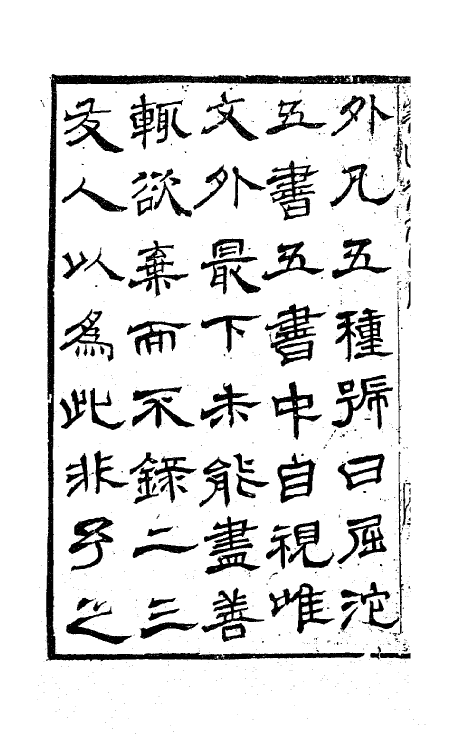 外凡五種號曰屈沱
五書五書中自視唯
文外最下未能盡善
輒欲棄而不錄二三
友人以為此非予之